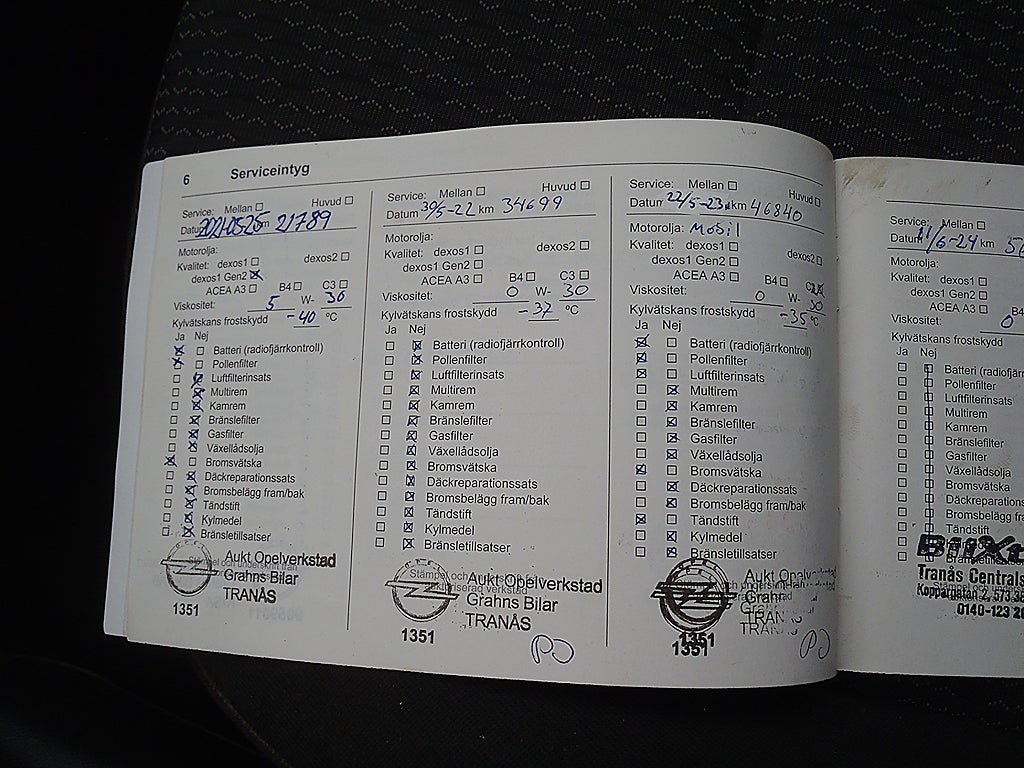 6 Serviceintyg
Service: Mellan ☐ Huvud ☐
Datum 2021-05-25 km 21789
Motorolja:
Kvalitet: dexos1 ☐ dexos2 ☐
dexos1 Gen2 ☒
ACEA A3 ☐ B4 ☐ C3 ☐
Viskositet: 5 W- 30
Kylvätskans frostskydd -40 °C
Ja Nej
☒ ☐ Batteri (radiofjärrkontroll)
☒ ☐ Pollenfilter
☐ ☒ Luftfilterinsats
☐ ☒ Multirem
☐ ☒ Kamrem
☐ ☒ Bränslefilter
☐ ☒ Gasfilter
☐ ☒ Växellådsolja
☒ ☐ Bromsvätska
☐ ☒ Däckreparationssats
☐ ☒ Bromsbelägg fram/bak
☐ ☒ Tändstift
☐ ☒ Kylmedel
☐ ☒ Bränsletillsatser
Aukt Opelverkstad
Grahns Bilar
TRANÅS
1351
Service: Mellan ☐ Huvud ☐
Datum 30/5-22 km 34699
Motorolja:
Kvalitet: dexos1 ☐ dexos2 ☐
dexos1 Gen2 ☐
ACEA A3 ☐ B4 ☐ C3 ☐
Viskositet: 0 W- 30
Kylvätskans frostskydd -37 °C
Ja Nej
☐ ☒ Batteri (radiofjärrkontroll)
☐ ☒ Pollenfilter
☐ ☒ Luftfilterinsats
☐ ☒ Multirem
☐ ☒ Kamrem
☐ ☒ Bränslefilter
☐ ☒ Gasfilter
☐ ☒ Växellådsolja
☐ ☒ Bromsvätska
☐ ☒ Däckreparationssats
☐ ☒ Bromsbelägg fram/bak
☐ ☒ Tändstift
☐ ☒ Kylmedel
☐ ☒ Bränsletillsatser
Stämpel och
Aukt Opelverkstad
Grahns Bilar
TRANÅS
1351
Service: Mellan ☐ Huvud ☐
Datum 22/5-23 km 46840
Motorolja: Mobil
Kvalitet: dexos1 ☐ dexos2 ☐
dexos1 Gen2 ☐
ACEA A3 ☐ B4 ☐
Viskositet: 0 W- 30
Kylvätskans frostskydd -35 °C
Ja Nej
☒ ☐ Batteri (radiofjärrkontroll)
☒ ☐ Pollenfilter
☒ ☐ Luftfilterinsats
☐ ☒ Multirem
☐ ☒ Kamrem
☐ ☒ Bränslefilter
☐ ☒ Gasfilter
☐ ☒ Växellådsolja
☒ ☐ Bromsvätska
☐ ☒ Däckreparationssats
☐ ☒ Bromsbelägg fram/bak
☒ ☐ Tändstift
☐ ☒ Kylmedel
☐ ☒ Bränsletillsatser
Aukt
Grahn
TRANÅS
1351
1351
Service: Mellan ☐
Datum 11/6-24 km
Motorolja:
Kvalitet: dexos1 ☐
dexos1 Gen2 ☐
ACEA A3 ☐
Viskositet: 0
Kylvätskans frostskydd
Ja Nej
☐ ☐ Batteri (radiofjärr
☐ ☐ Pollenfilter
☐ ☐ Luftfilterinsats
☐ ☐ Multirem
☐ ☐ Kamrem
☐ ☐ Bränslefilter
☐ ☐ Gasfilter
☐ ☐ Växellådsolja
☐ ☐ Bromsvätska
☐ ☐ Däckreparations
☐ ☐ Bromsbelägg fr
☐ ☐ Tändstift
Tranås Centrals
Koppargatan 2, 573
0140-123